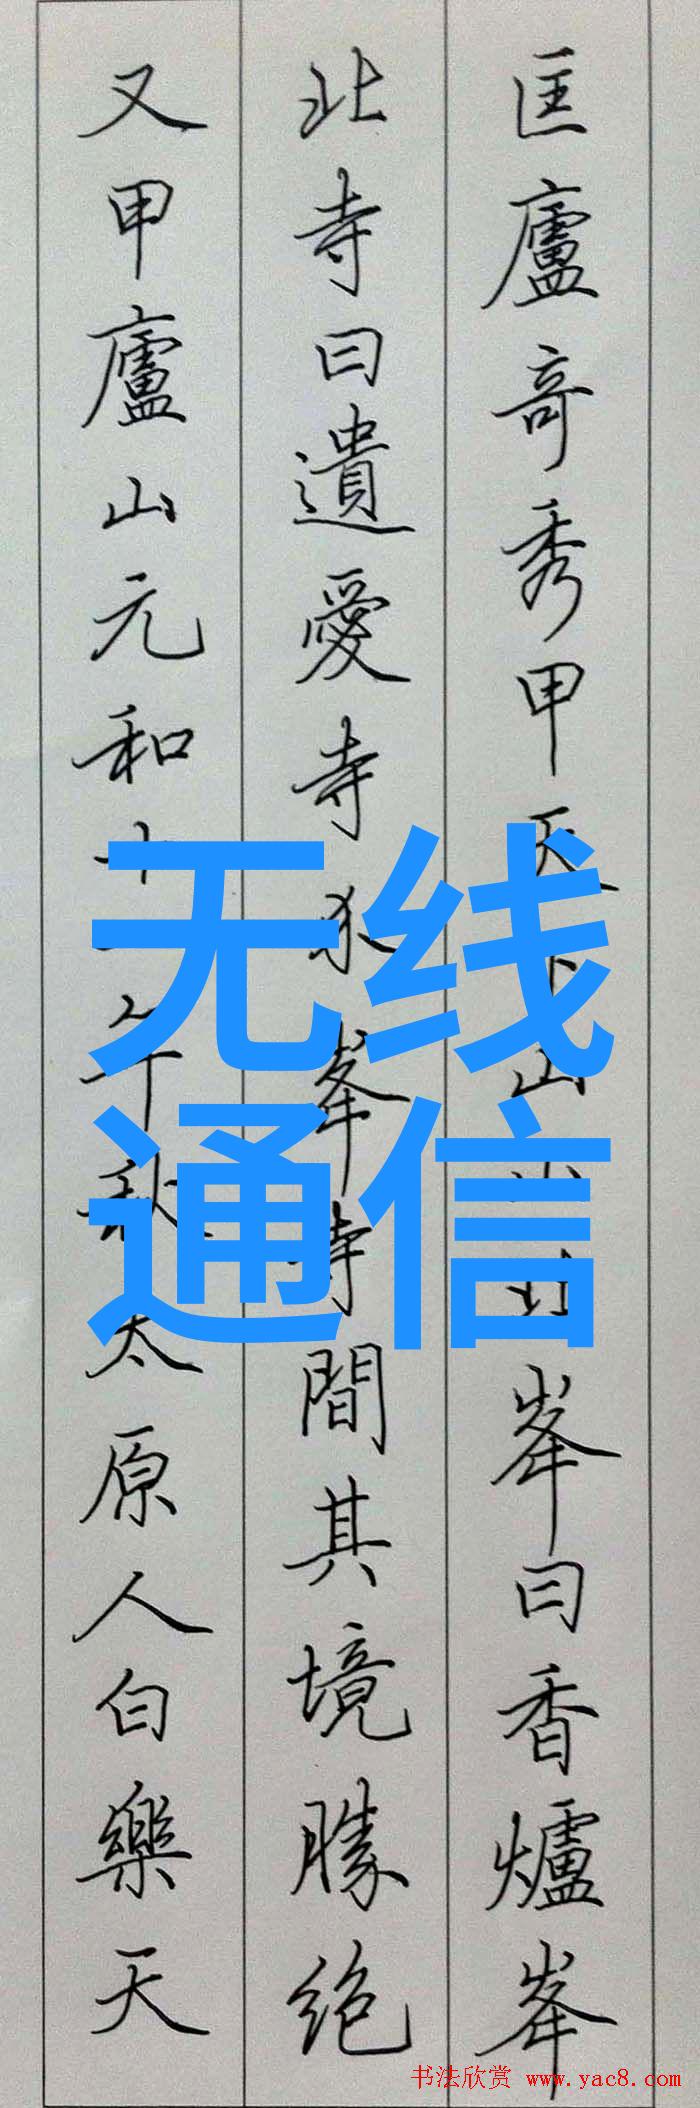 匡廬竒秀甲天下山山北峯曰香爐峯
北寺曰遺愛寺峯寺間其境勝絶
又甲廬山元和十一年秋太原人白樂天
无线
通信
书法欣赏 www.yac8.com